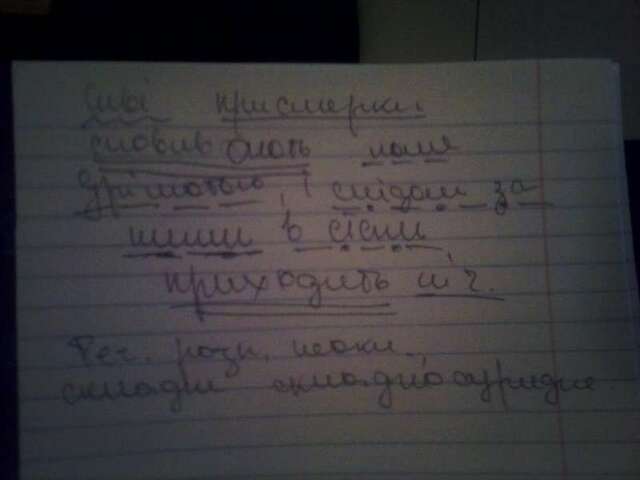 Сиві присмерки
сповивають поля
дрімотою, і слідом за
ними в сісни
приходить ніч.
Реч. розп, неокл.,
складне складносурядне